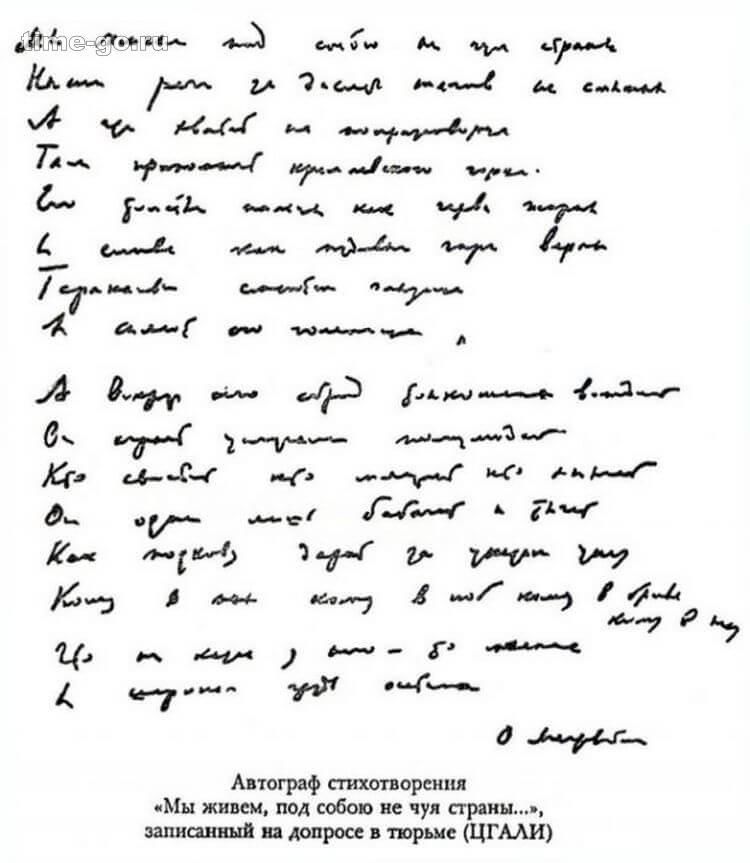 time-go.ru
Мы живем под собою не чуя страны
Наши речи за десять шагов не слышны
А где хватит на полразговорца
Там припомнят кремлевского горца.
Его толстые пальцы как черви жирны
И слова как пудовые гири верны
Тараканьи смеются
И сияют его голенища
А вокруг него сброд тонкошеих вождей
Он играет услугами полулюдей
Кто свистит кто мяучит кто хнычет
Он один лишь бабачит и тычет
Как подкову дарит за указом указ
Кому в пах кому в лоб кому в бровь
кому в глаз
Что ни казнь у него – то малина
И широкая грудь осетина
О Мандельштам
Автограф стихотворения
«Мы живем, под собою не чуя страны...»,
записанный на допросе в тюрьме (ЦГАЛИ)